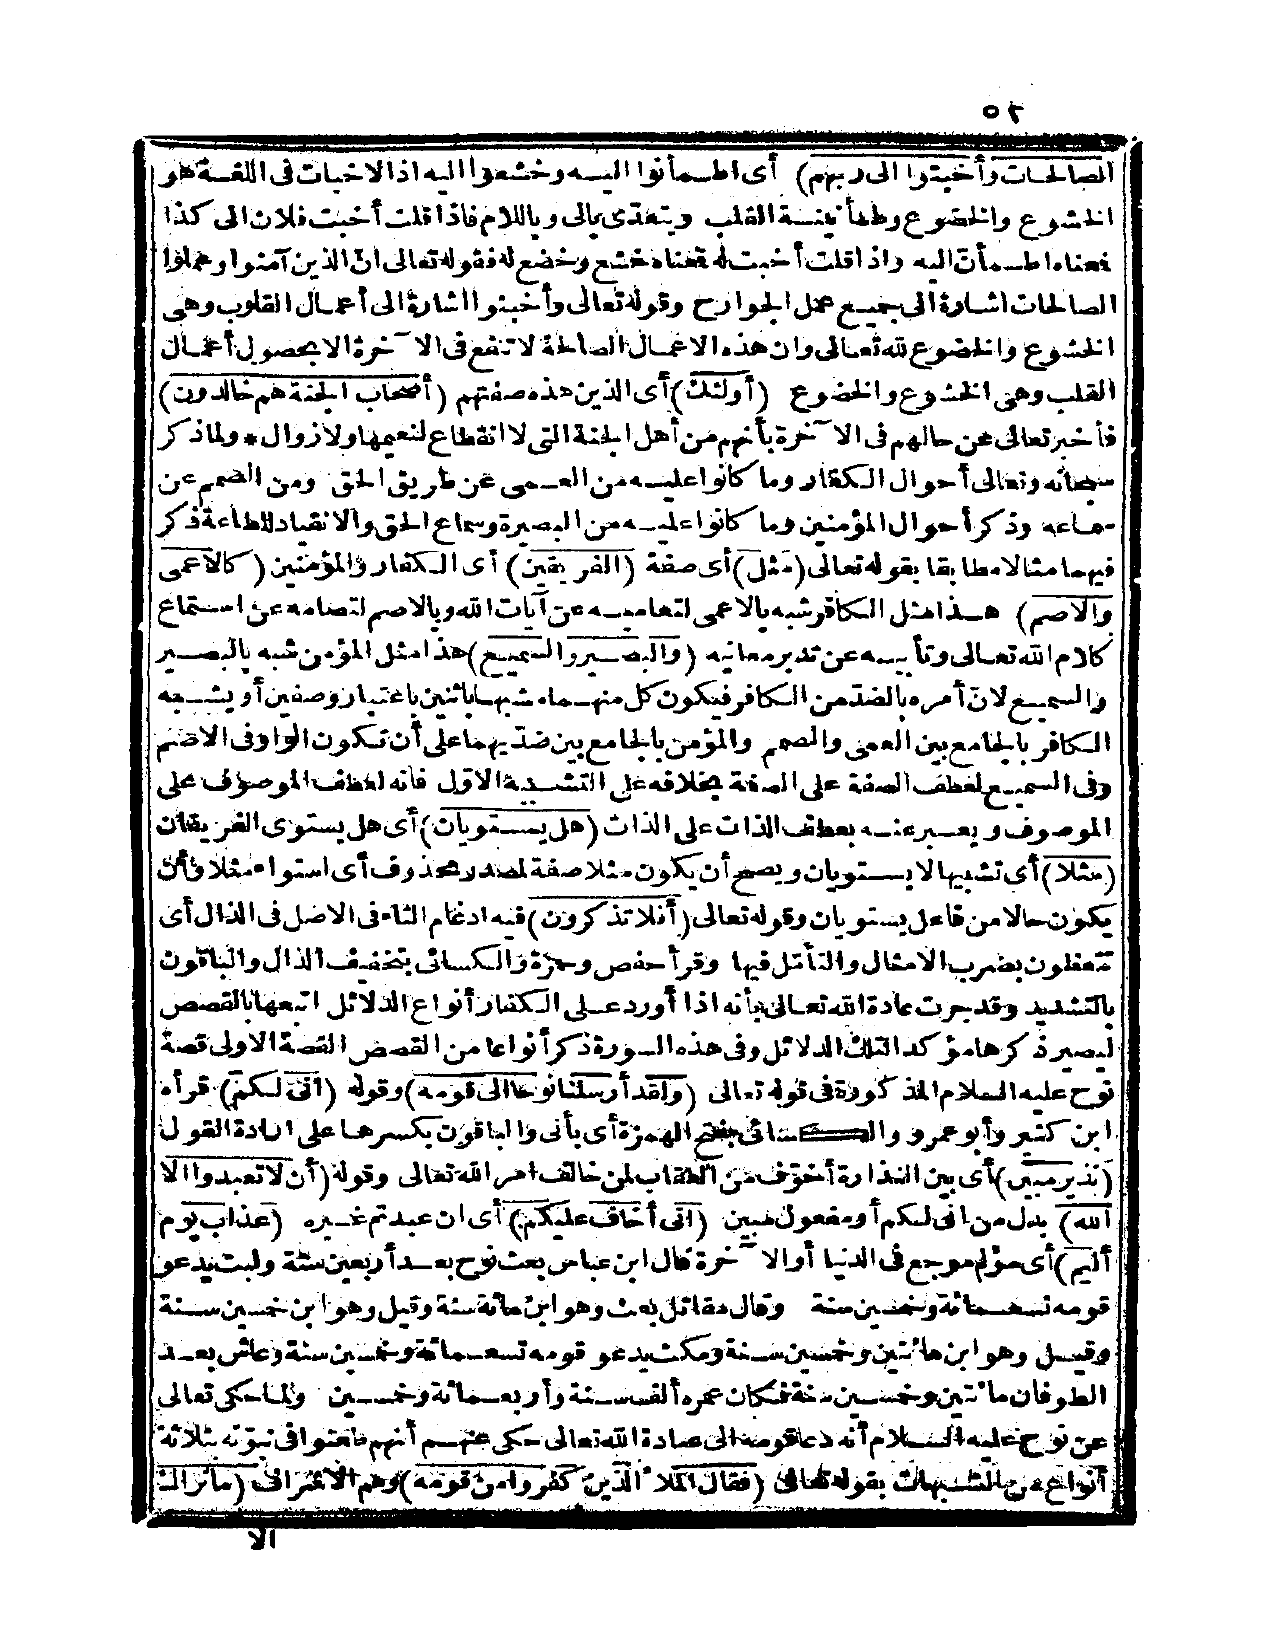 ٥٢
الصالحات وأخبتوا الى ربهم) أى اطمأنوا اليه وخشعوا اليه اذ الاخبات فى اللغة هو
الخشوع والخضوع وطمأنينة القلب ويتعدى بالى وباللام فاذا قلت أخبت فلان الى كذا
فمعناه اطمأن اليه واذا قلت أخبت له فمعناه خشع وخضع له فقوله تعالى انّ الذين آمنوا وعملوا
الصالحات اشارة الى جميع عمل الجوارح وقوله تعالى وأخبتوا اشارة الى أعمال القلوب وهى
الخشوع والخضوع لله تعالى وان هذه الاعمال الصالحة لا تنفع فى الآخرة الا بحصول أعمال
القلب وهى الخشوع والخضوع (أولئك) أى الذين هذه صفتهم (أصحاب الجنة هم خالدون)
فأخبر تعالى عن حالهم فى الآخرة بأنهم من أهل الجنة التى لا انقطاع لنعيمها ولا زوال * ولما ذكر
سبحانه وتعالى أحوال الكفار وما كانوا عليه من العمى عن طريق الحق ومن الصمم عن
سماعه وذكر أحوال المؤمنين وما كانوا عليه من البصيرة وسماع الحق والانقياد للطاعة ذكر
فيهما مثالا مطابقا بقوله تعالى (مثل) أى صفة (الفريقين) أى الكفار والمؤمنين (كالاعمى
والاصم) هذا مثل الكافر شبه بالاعمى لتعاميه عن آيات الله وبالاصم لتصامه عن استماع
كلام الله تعالى وتأبيه عن تدبر معانيه (والبصير والسميع) هذا مثل المؤمن شبه بالبصير
والسميع لانّ أمره بالضدّ من الكافر فيكون كل منهما مشبها باثنين باعتبار وصفين أو يشبه
الكافر بالجامع بين العمى والصمم والمؤمن بالجامع بين ضدّيهما على أن تكون الواو فى الاصم
وفى السميع لعطف الصفة على الصفة بخلافه على التشبيه الاوّل فانه لعطف الموصوف على
الموصوف ويعبر عنه بعطف الذات على الذات (هل يستويان) أى هل يستوى الفريقان
(مثلا) أى تشبيها لا يستويان ويصح أن يكون مثلا صفة لمصدر محذوف أى استواء مثلا وأن
يكون حالا من فاعل يستويان وقوله تعالى (أفلا تذكرون) فيه ادغام التاء فى الاصل فى الذال أى
تتعظون بضرب الامثال والتأمّل فيها وقرأ حفص وحمزة والكسائى بتخفيف الذال والباقون
بالتشديد وقد جرت عادة الله تعالى بأنه اذا أورد على الكفار أنواع الدلائل اتبعها بالقصص
ليصير ذكرها مؤكدا لتلك الدلائل وفى هذه السورة ذكر أنواعا من القصص القصة الاولى قصة
نوح عليه السلام المذكورة فى قوله تعالى (ولقد أرسلنا نوحا الى قومه) وقوله (انى لكم) قرأه
ابن كثير وأبو عمرو والكسائى بفتح الهمزة أى بأنى والباقون بكسرها على ارادة القول
(نذير مبين) أى بين النذارة أخوّف من العقاب لمن خالف امر الله تعالى وقوله (أن لا تعبدوا الا
الله) بدل من انى لكم أو مفعول مبين (انى أخاف عليكم) أى ان عبدتم غيره (عذاب يوم
أليم) أى مؤلم موجع فى الدنيا أو الآخرة قال ابن عباس بعث نوح بعد أربعين سنة ولبث يدعو
قومه تسعمائة وخمسين سنة وقال مقاتل بعث وهو ابن مائة سنة وقيل وهو ابن خمسين سنة
وقيل وهو ابن مائتين وخمسين سنة ومكث يدعو قومه تسعمائة وخمسين سنة وعاش بعد
الطوفان مائتين وخمسين سنة فكان عمره ألف سنة وأربعمائة وخمسين ولما حكى تعالى
عن نوح عليه السلام أنه دعا قومه الى عبادة الله تعالى حكى عنهم أنهم طعنوا فى نبوّته بثلاثة
أنواع من الشبهات بقوله تعالى (فقال الملأ الذين كفروا من قومه) وهم الاشراف (ما نراك
الا